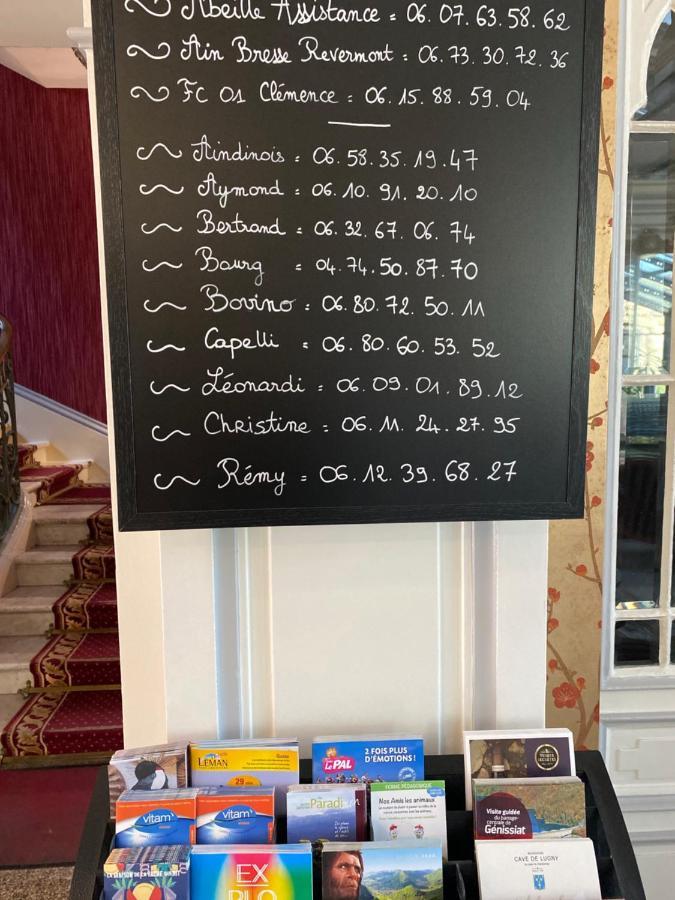 Abeille Assistance = 06.07.63.58.62
Ain Bresse Revermont = 06.73.30.72.36
FC 01 Clémence = 06.15.88.59.04
Aindinois = 06.58.35.19.47
Aymond = 06.10.91.20.10
Bertrand = 06.32.67.06.74
Bourg = 04.74.50.87.70
Bovino = 06.80.72.50.11
Capelli = 06.80.60.53.52
Léonardi = 06.09.01.89.12
Christine = 06.11.24.27.95
Rémy = 06.12.39.68.27
LÉMAN
29
LE PAL
2 FOIS PLUS
D'ÉMOTIONS !
vitam
vitam
Paradi
FERME PÉDAGOGIQUE
Nos Amis les animaux
Visite guidée
du barrage-
centrale de
Génissiat
LA SAISON DE LA VACHE QUI RIT
EX
PLO
CAVE DE LUGNY